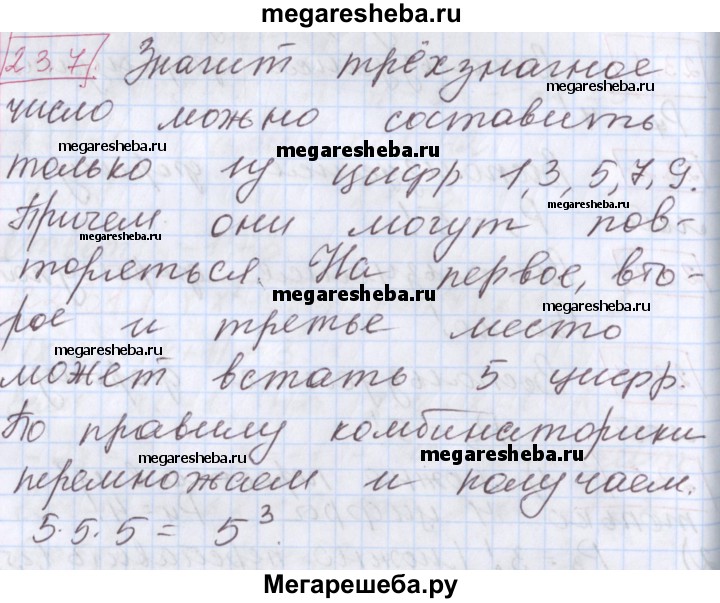 megaresheba.ru
2.3.7. Значит трёхзначное
число можно составить
megaresheba.ru
megaresheba.ru
только из цифр 1, 3, 5, 7, 9.
megaresheba.ru
Причем они могут пов-
megaresheba.ru
торяться. На первое, вто-
megaresheba.ru
megaresheba.ru
рое и третье место
megaresheba.ru
может встать 5 цифр:
По правилу комбинаторики
megaresheba.ru
megaresheba.ru
перемножаем и получаем.
5·5·5 = 5³.
Мегарешеба.ру